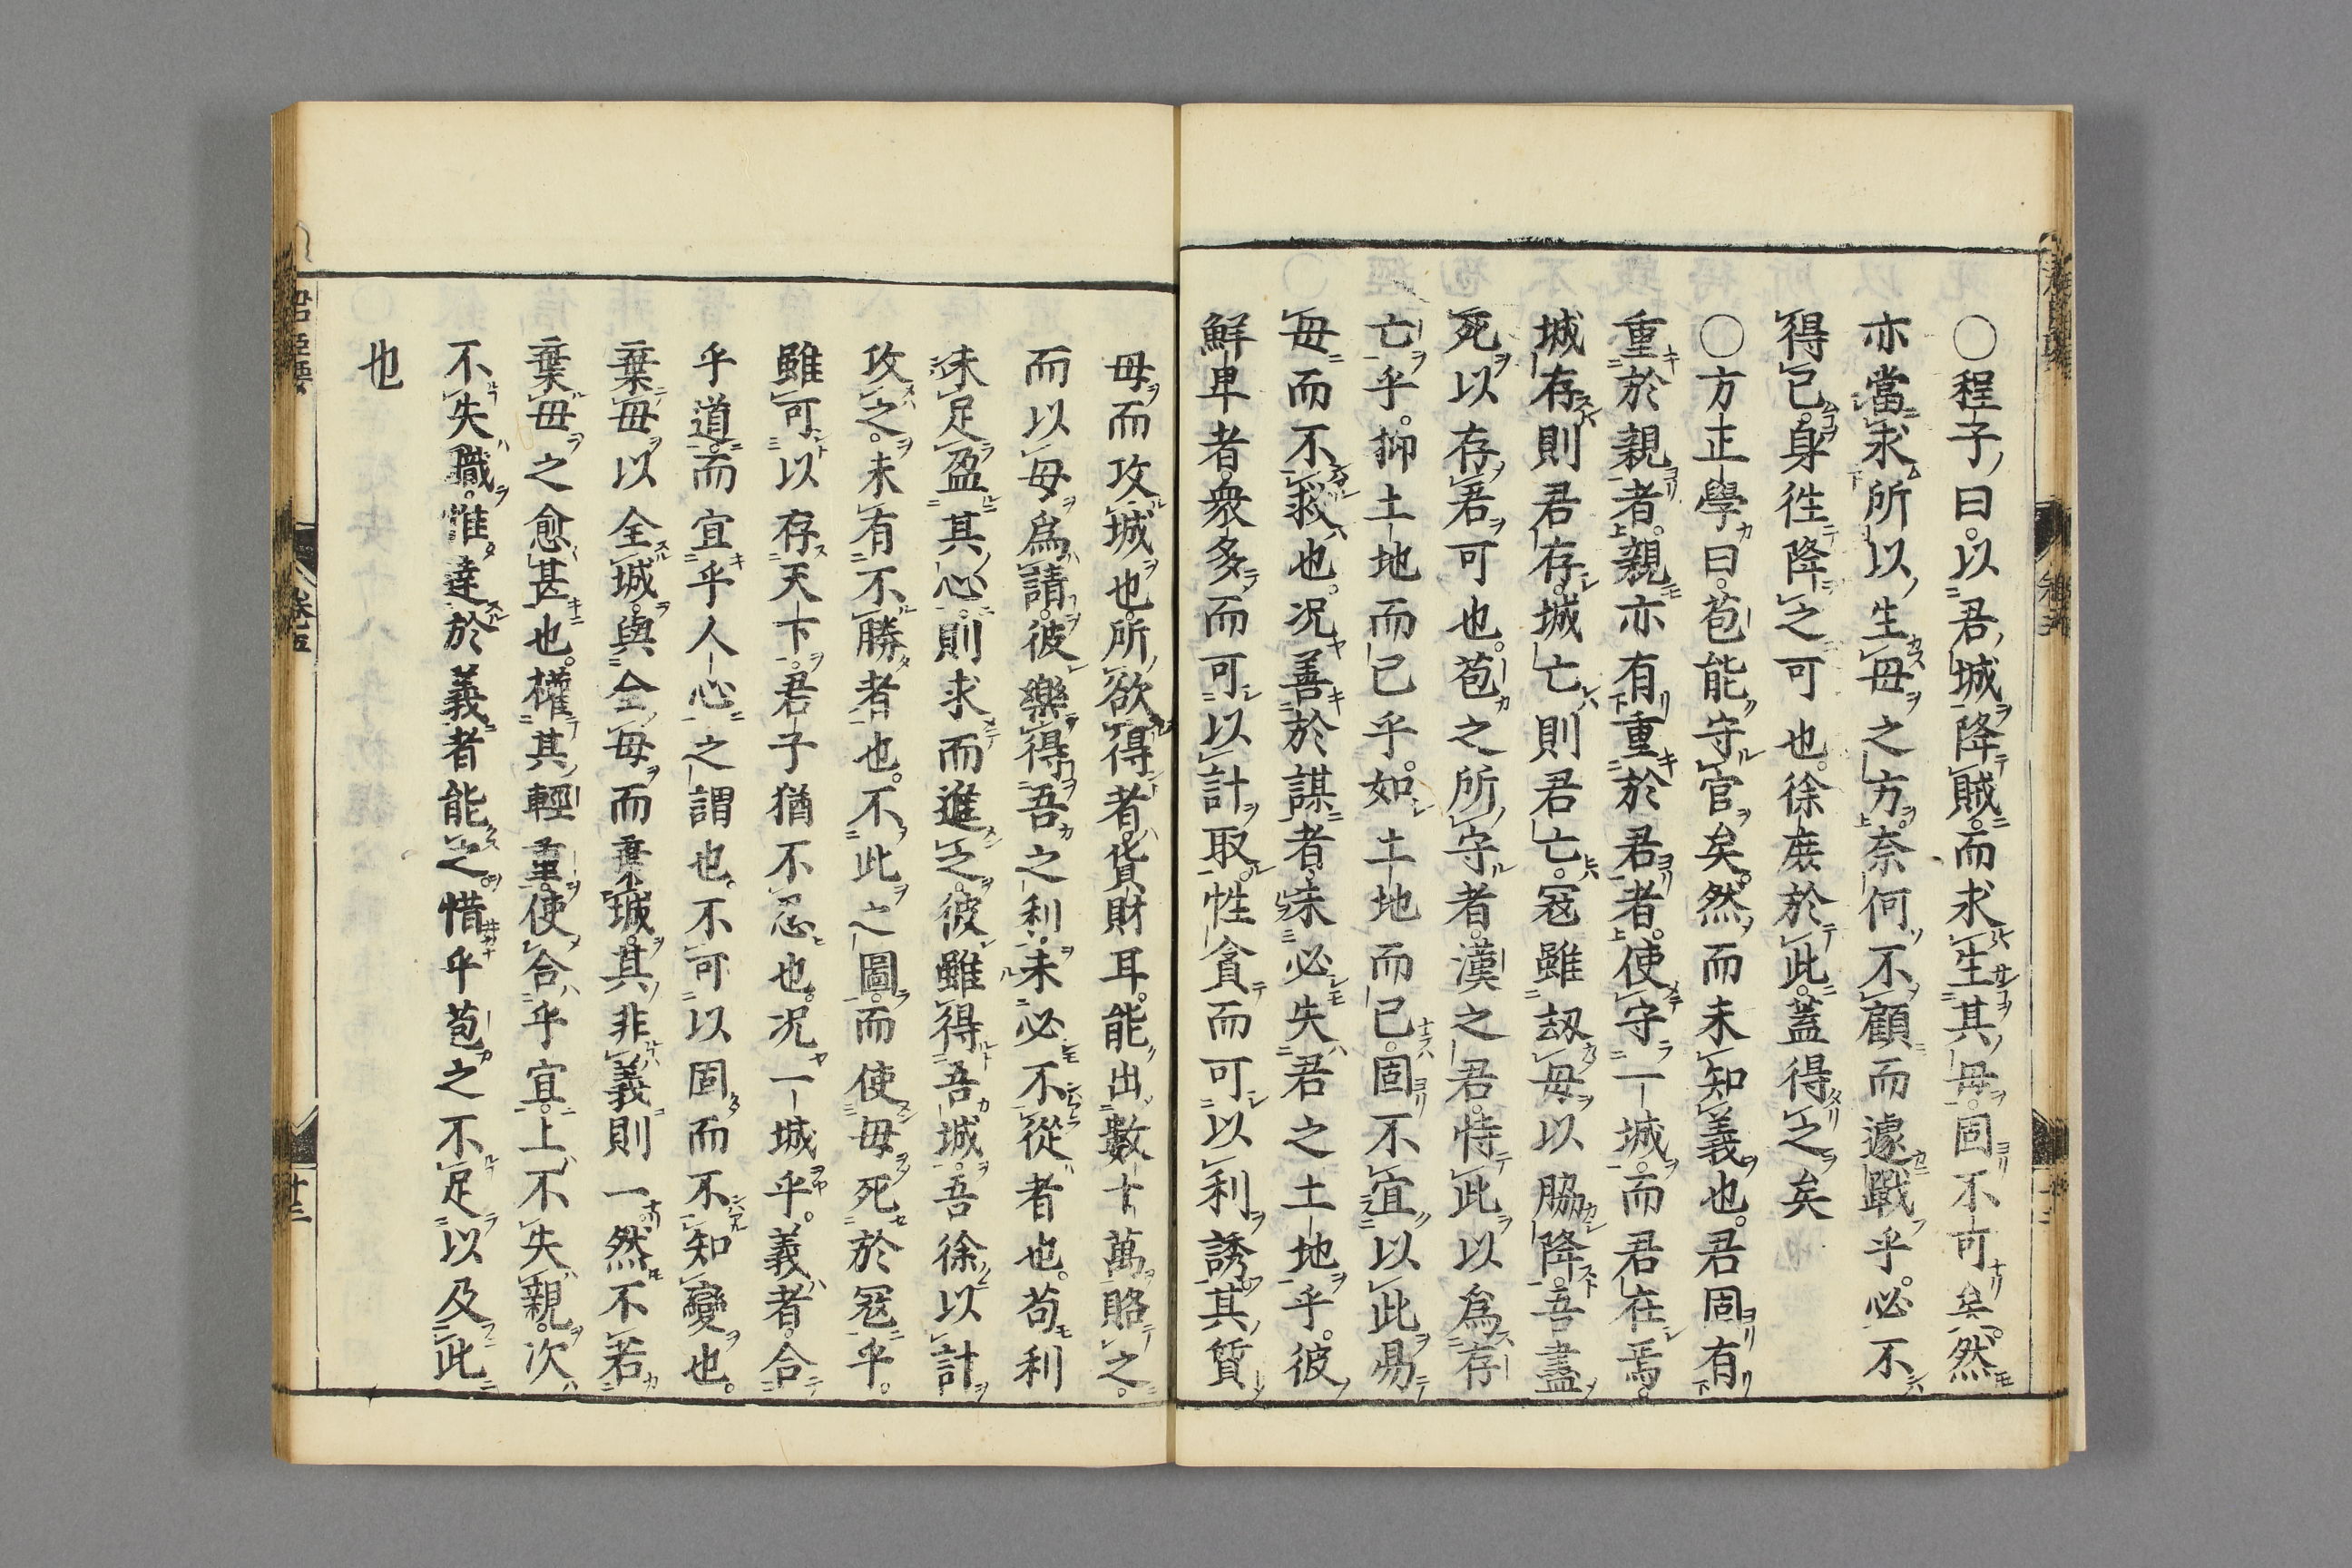 ○程子曰。以君城降賊。而求生其母。固不可矣。然
亦當求所以生母之方。奈何不顧而遽戰乎。必不
得已。身徃降之可也。徐庶於此。蓋得之矣
○方正學曰。苞能守官矣。然而未知義也。君固有
重於親者。親亦有重於君者。使守一城。而君在焉。
城存則君存。城亡則君亡。冦雖刼母以脇降。吾盡
死以存君可也。苞之所守者。漢之君。恃此以爲存
亡乎。抑土地而已乎。如土地而已。固不宜以此易
母而不救也。况善於謀者。未必失君之土地乎。彼
鮮卑者。衆多而可以計取。性貪而可以利誘。其質
母而攻城也。所欲得者。貨財耳。能出數十萬賂之。
而以母爲請。彼樂得吾之利。未必不從者也。苟利
未足盈其心。則求而進之。彼雖得吾城。吾徐以計
攻之。未有不勝者也。不此之圖。而使母死於冦乎。
雖可以存天下。君子猶不忍也。况一城乎。義者。合
乎道。而宜乎人心之謂也。不可以固而不知變也。
棄母以全城。與全母而棄城。其非義則一。然不若
棄母之愈甚也。權其輕重。使合乎宜。上不失親。次
不失職。惟達於義者能之。惜乎苞之不足以及此
也
卷五